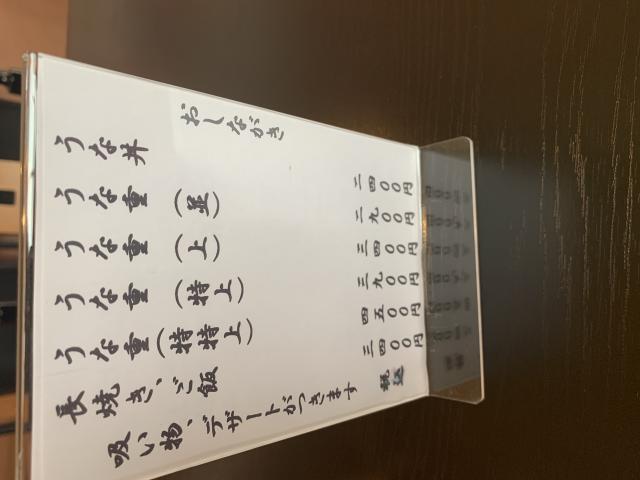 おしながき
うな丼 二四〇〇円
うな重(並) 二九〇〇円
うな重(上) 三四〇〇円
うな重(特上) 三九〇〇円
うな重(特特上) 四五〇〇円
長焼き、ご飯 三四〇〇円
吸い物、デザートがつきます 税込